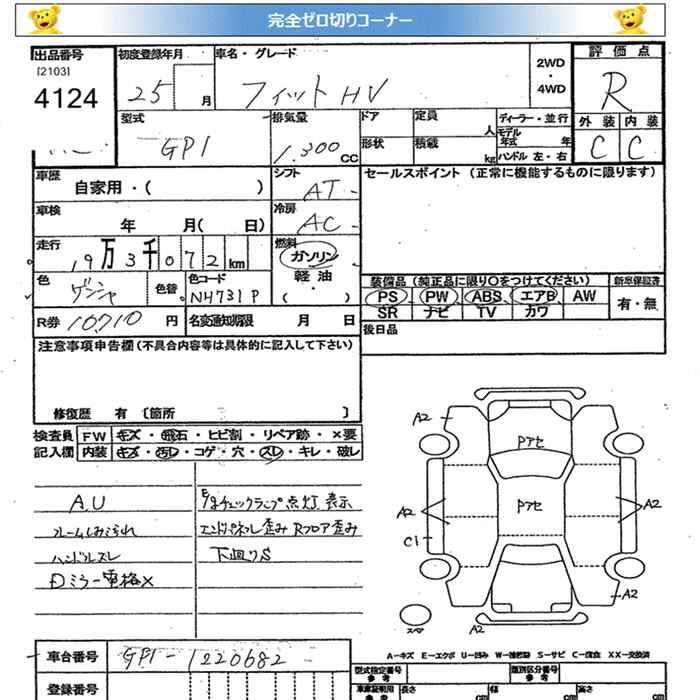 完全ゼロ切りコーナー
出品番号 初度登録年月 車名・グレード 2WD・4WD 評価点
[2103]
4124 25 月 フィット HV R
型式 排気量 ドア 定員 人 ディーラー・並行 外装 内装
GP1 1.300 CC 形状 積載 kg モデル年式 年 ハンドル 左・右 C C
車歴 自家用・( ) シフト AT セールスポイント (正常に機能するものに限ります)
車検 年 月( 日) 冷房 AC
走行 19万3千072km 燃料 ガソリン
軽油・( )
色 ゲンシャ 色替 色コード NH731P
装備品 (純正品に限り○をつけてください) 新車保証書
PS PW ABS エアB AW 有・無
SR ナビ TV カワ
R券 10710円 名変通知期限 月 日 後日品
注意事項申告欄 (不具合内容等は具体的に記入して下さい)
修復歴 有 〔箇所 〕
検査員 FW キズ・飛石・ヒビ割・リペア跡・×要
記入欄 内装 キズ・汚レ・コゲ・穴・スレ・キレ・破レ
A.U
ハンドルスレ
Dミラー電格×
チェックランプ点灯 表示
エンドパネル歪み Rフロア歪み
下廻りS
A2
Pアセ
Pアセ
A2 A2
C1
スペア A2
A−キズ E−エクボ U−凹み W−補修跡 S−サビ C−腐食 XX−交換済
車台番号 GP1-1220682 型式指定番号 参考 類別区分番号 参考
登録番号 車庫証明用 参考 長さ cm 幅 cm 高さ cm